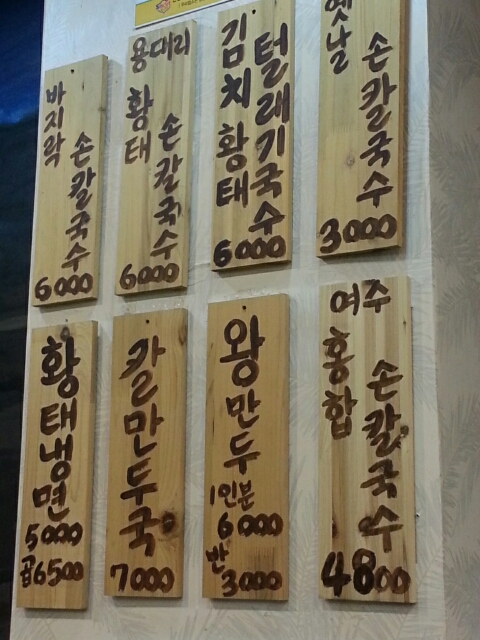 바지락
손칼국수
6000
용대리
황태
손칼국수
6000
김치황태
털래기국수
6000
옛날
손칼국수
3000
황태냉면
5000
곱6500
칼만두국
7000
왕만두
1인분
6000
반
3000
여주
홍합
손칼국수
4800